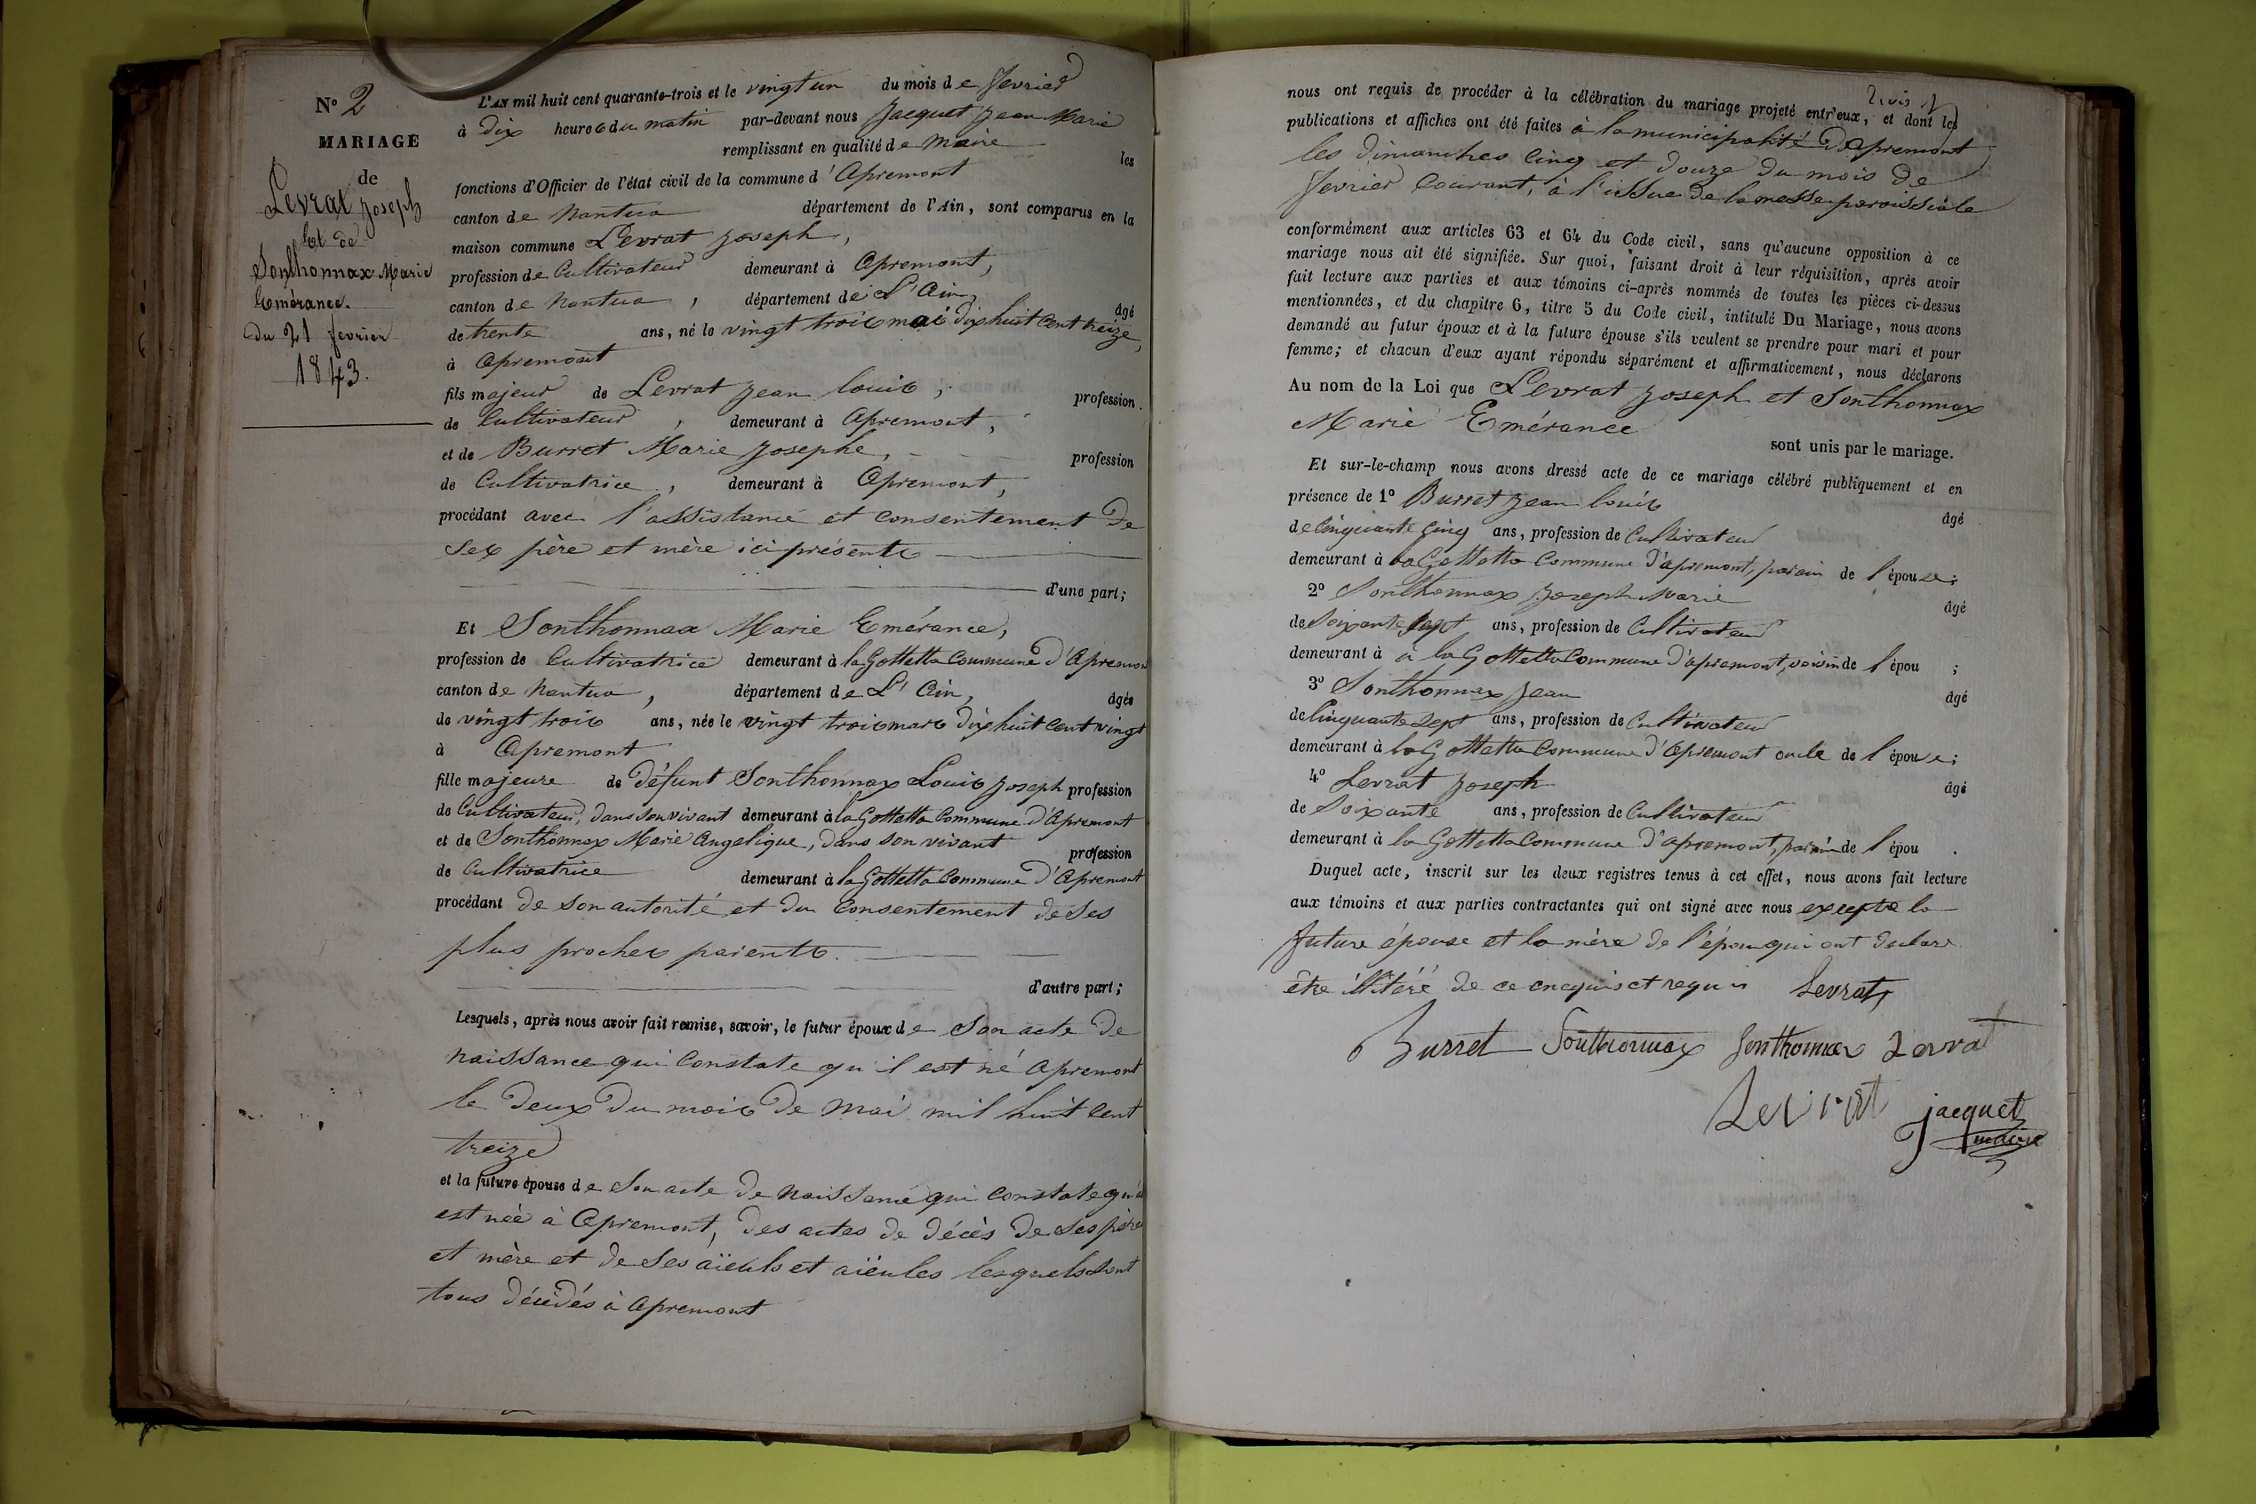 N° 2
MARIAGE
de
Levrat Joseph
Et de
Sonthonnax Marie
Emérance.
du 21 fevrier
1843.
L'AN mil huit cent quarante-trois et le vingt un du mois de fevrier
à dix heures du matin par-devant nous Jacquet Jean Marie
remplissant en qualité de Maire les
fonctions d'Officier de l'état civil de la commune d'Apremont
canton de Nantua département de l'Ain, sont comparus en la
maison commune Levrat Joseph,
profession de Cultivateur demeurant à Apremont,
canton de Nantua, département de L'Ain, âgé
de trente ans, né le vingt trois mai dix huit cent treize,
à Apremont
fils majeur de Levrat Jean Louis, profession
de Cultivateur, demeurant à Apremont,
et de Burret Marie Josephe, profession
de Cultivatrice, demeurant à Apremont,
procédant avec l'assistance et consentement de
ses père et mère ici présents
d'une part;
Et Sonthonnax Marie Emérance,
profession de Cultivatrice demeurant à la Gottetta Commune d'Apremon
canton de Nantua, département de L'Ain, âgée
de vingt trois ans, née le vingt trois mars dix huit cent vingt
à Apremont
fille majeure de défunt Sonthonnax Louis Joseph profession
de Cultivateur, dans son vivant demeurant à la Gottetta Commune d'Apremont
et de Sonthonnax Marie Angelique, dans son vivant profession
de Cultivatrice demeurant à la Gottetta Commune d'Apremont
procédant de son autorité et du consentement de ses
plus proches parents.
d'autre part;
Lesquels, après nous avoir fait remise, savoir, le futur époux de Son acte de
naissance qui Constate qu'il est né Apremont
le deux du mois de mai mil huit cent
treize
et la future épouse de Son acte de naissance qui constate qu'
est née à Apremont, des actes de décès de ses père
et mère et de ses aïeuls et aïeules lesquels sont
tous décédés à Apremont
nous ont requis de procéder à la célébration du mariage projeté entr'eux, et dont les
publications et affiches ont été faites à la municipalité d'Apremont
les dimanches cinq et douze du mois de
fevrier Courant, à l'issue de la messe paroissiale
conformément aux articles 63 et 64 du Code civil, sans qu'aucune opposition à ce
mariage nous ait été signifiée. Sur quoi, faisant droit à leur réquisition, après avoir
fait lecture aux parties et aux témoins ci-après nommés de toutes les pièces ci-dessus
mentionnées, et du chapitre 6, titre 5 du Code civil, intitulé Du Mariage, nous avons
demandé au futur époux et à la future épouse s'ils veulent se prendre pour mari et pour
femme; et chacun d'eux ayant répondu séparément et affirmativement, nous déclarons
Au nom de la Loi que Levrat Joseph et Sonthonnax
Marie Emérance
sont unis par le mariage.
Et sur-le-champ nous avons dressé acte de ce mariage célébré publiquement et en
présence de 1° Burret Jean Louis âgé
de Cinquante Cinq ans, profession de Cultivateur
demeurant à la Gottetta Commune d'apremont, parain de l'épouse;
2° Sonthonnax Joseph Marie âgé
de Soixante Sept ans, profession de Cultivateur
demeurant à à la Gottetta Commune d'apremont, voisin de l'épou ;
3° Sonthonnax Jean âgé
de Cinquante Sept ans, profession de Cultivateur
demeurant à la Gottetta Commune d'apremont oncle de l'épouse;
4° Levrat Joseph âgé
de Soixante ans, profession de Cultivateur
demeurant à la Gottetta Commune d'apremont, parain de l'épou .
Duquel acte, inscrit sur les deux registres tenus à cet effet, nous avons fait lecture
aux témoins et aux parties contractantes qui ont signé avec nous excepte la
future épouse et la mère de l'épou qui ont declare
être illitéré de ce enquis et requis Levrat
Burret Sonthonnax Sonthonnax Levrat
Levrat Jacquet
maire